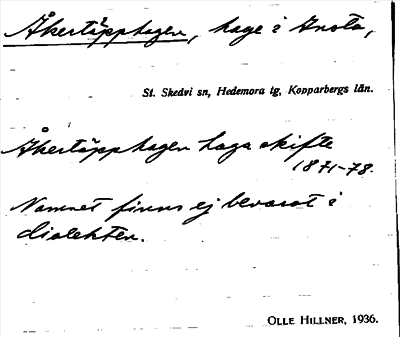 Åkertäpphagen, hage i Knota,
St. Skedvi sn, Hedemora tg, Kopparbergs län.
Åkertäpphagen Laga skifte
1871-78.
Namnet finns ej bevarat i
dialekten.
OLLE HILLNER, 1936.